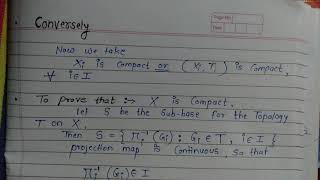 Page No.
Date
Conversely
Now we take
Xi is compact or (Xi, Ti) is compact,
∀ i∈I
To prove that :→ X is compact.
let S be the sub-base for the Topology
T on X.
Then S = { Πi⁻¹(Gi) : Gi ∈ T, i∈I }
projection map is continuous, so that
Πi⁻¹(Gi) ∈ I